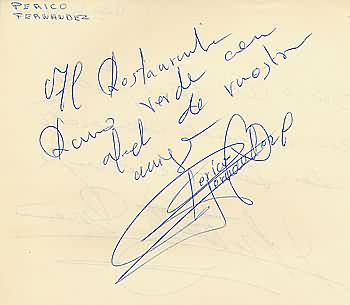 PERICO
FERNANDEZ
Al Restaurante
Ramo verde con
de vuestro
amigo
Perico
Fernandez